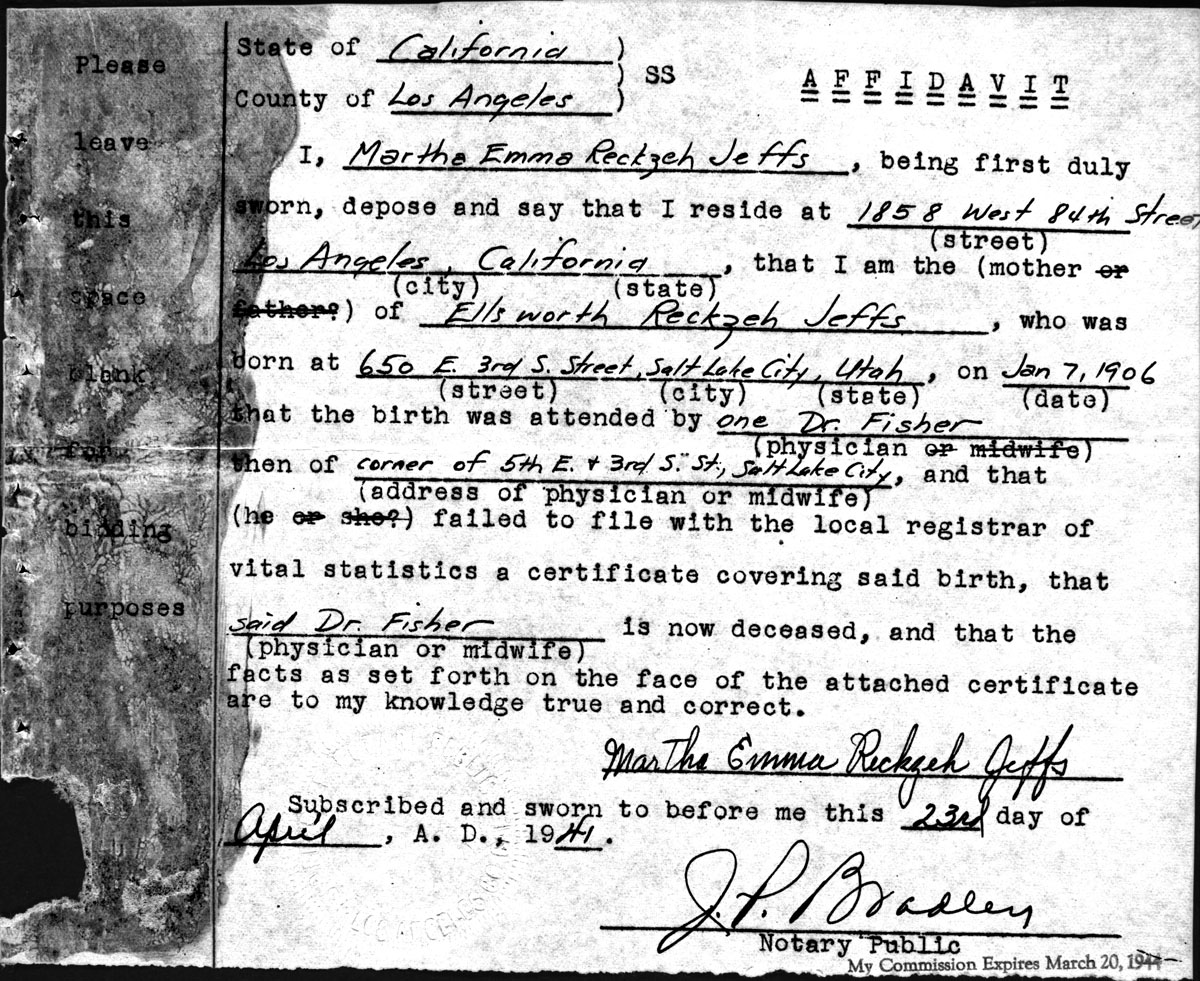 Please
leave
this
space
blank
for
binding
purposes
State of California )
) SS
County of Los Angeles )
AFFIDAVIT
I, Martha Emma Reckzeh Jeffs, being first duly
sworn, depose and say that I reside at 1858 West 84th Street
(street)
Los Angeles, California, that I am the (mother or
(city) (state)
father?) of Ellsworth Reckzeh Jeffs, who was
born at 650 E. 3rd S. Street, Salt Lake City, Utah, on Jan 7, 1906
(street) (city) (state) (date)
that the birth was attended by one Dr. Fisher
(physician or midwife)
then of corner of 5th E. & 3rd S. St., Salt Lake City, and that
(address of physician or midwife)
(he or she?) failed to file with the local registrar of
vital statistics a certificate covering said birth, that
said Dr. Fisher is now deceased, and that the
(physician or midwife)
facts as set forth on the face of the attached certificate
are to my knowledge true and correct.
Martha Emma Reckzeh Jeffs
Subscribed and sworn to before me this 23rd day of
April, A. D., 1941.
J. P. Bradley
Notary Public
My Commission Expires March 20, 1944